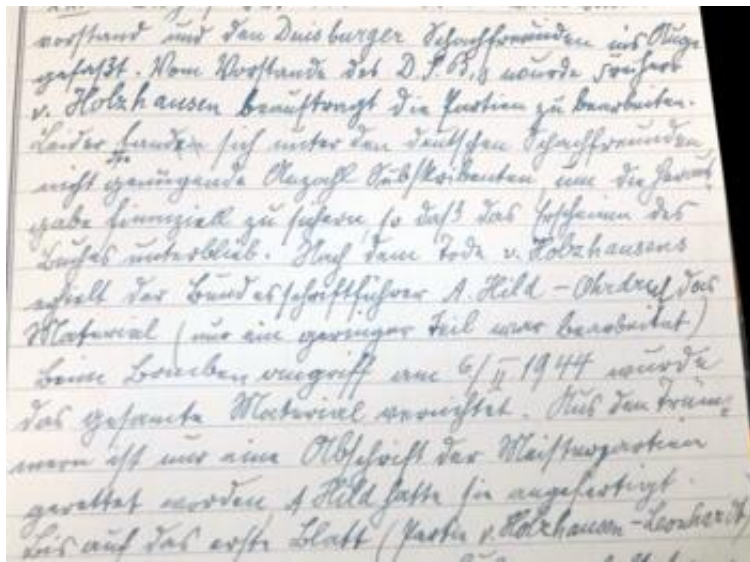 vorstand und den Duisburger Schachfreunden ins Auge
gefaßt. Vom Vorstande des D.S.B.s wurde Freiherr
v. Holzhausen beauftragt die Partien zu bearbeiten.
Leider fanden sich unter den deutschen Schachfreunden
nicht die genügende Anzahl Subskribenten, um die Heraus-
gabe finanziell zu sichern, so daß das Erscheinen des
Buches unterblieb. Nach dem Tode v. Holzhausens
erhielt der Bundesschriftführer A. Hild – Ohrdruf das
Material (nur ein geringer Teil war bearbeitet)
Beim Bombenangriff am 6/II 1944 wurde
das gesamte Material vernichtet. Aus den Trüm-
mern ist nur eine Abschrift der Meisterpartien
gerettet worden, A Hild hatte sie angefertigt.
Bis auf das erste Blatt (Partie v. Holzhausen – Leonhardt)